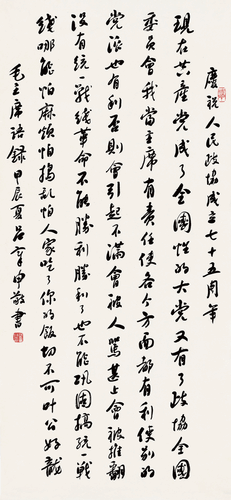 慶祝人民政協成立七十五周年
現在共產黨成了全國性的大黨又有了政協全國
委員會我當主席有責任使各个方面都有利使别的
黨派也有利否則會引起不滿會被人罵甚上會被推翻
沒有統一戰綫革命不能勝利勝利了也不能巩固搞統一戰
綫哪能怕麻煩怕搗亂怕人家吃了你的飯切不可叶公好龍
毛主席語錄甲辰夏吕章申敬書